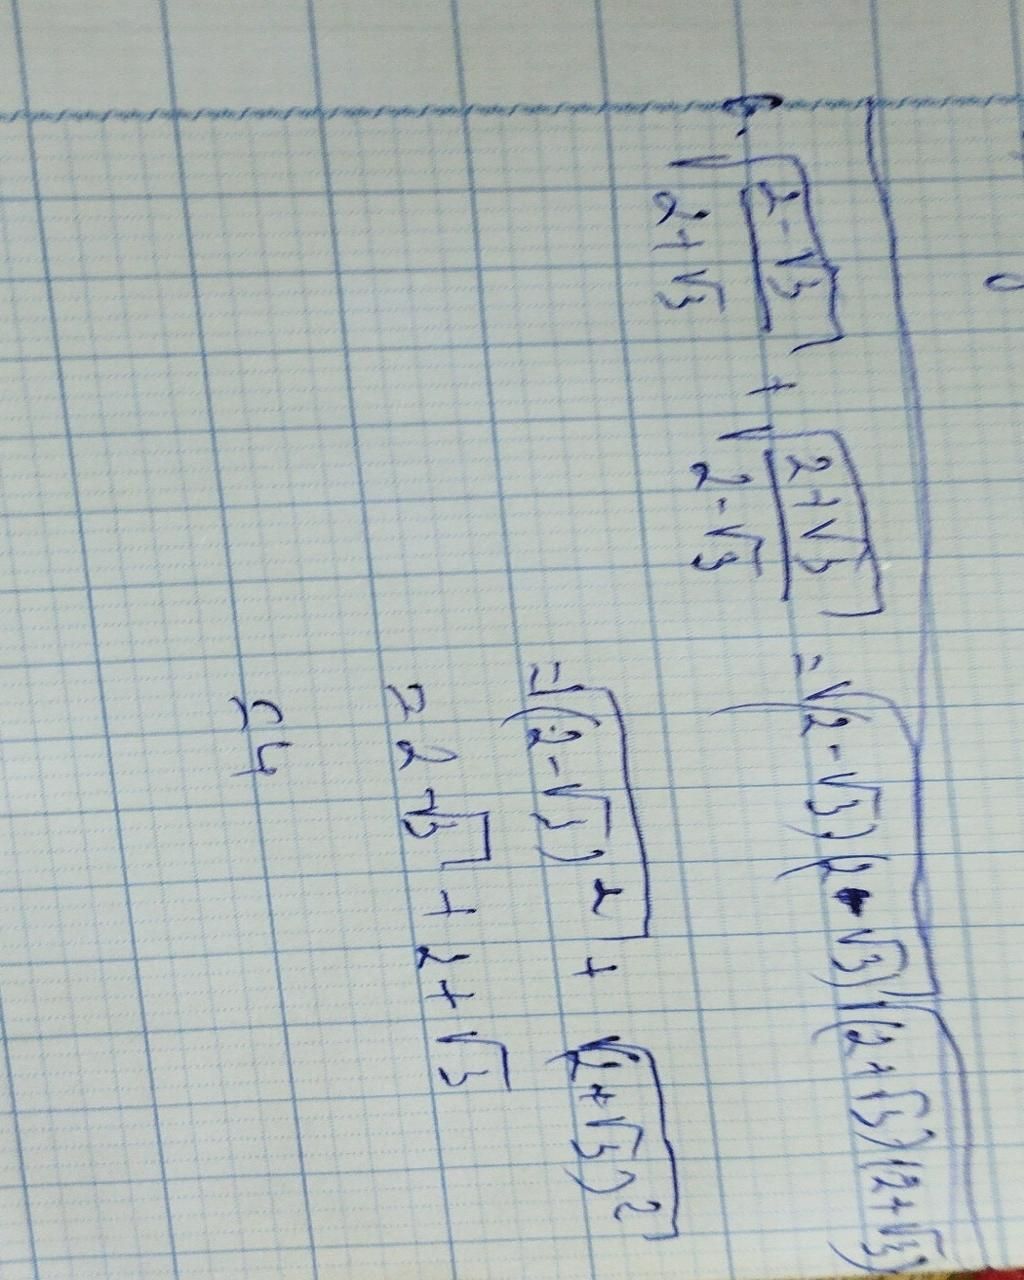 √((2-√3)/(2+√3)) + √((2+√3)/(2-√3)) = √((2-√3)(2-√3)) √((2+√3)(2+√3))
= √((2-√3)²) + √((2+√3)²)
2 2-√3 + 2+√3
= 4